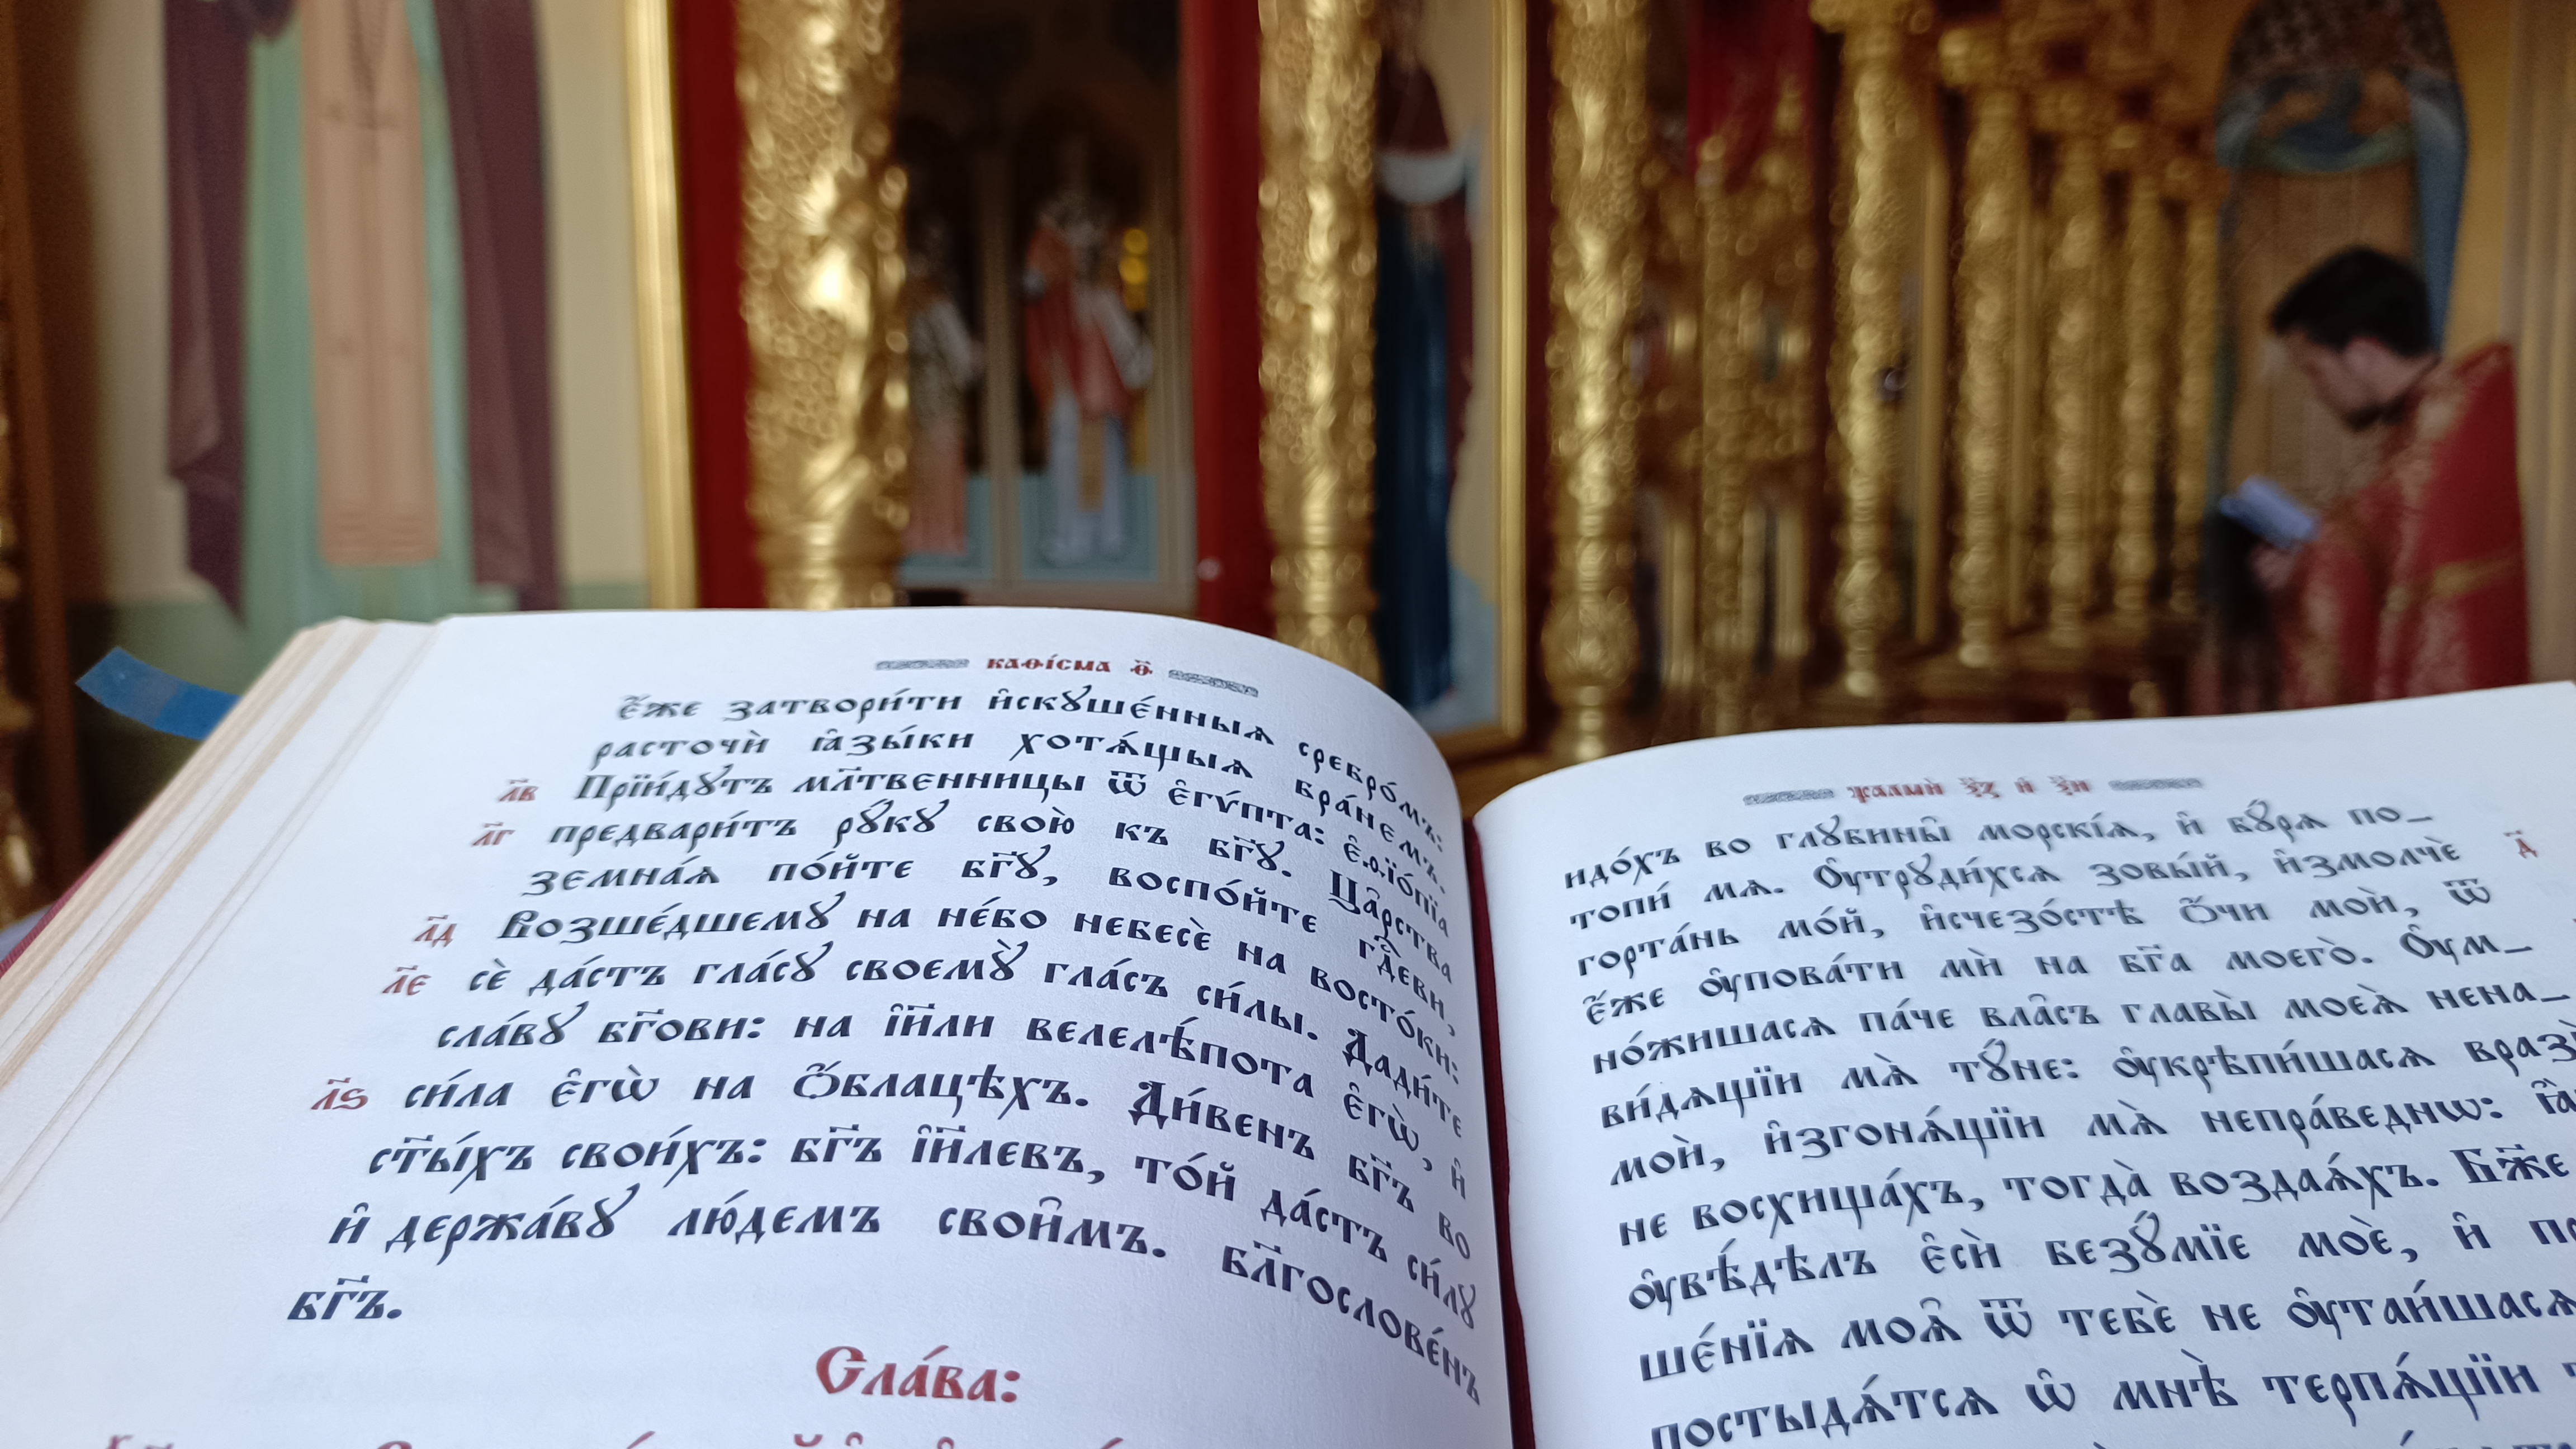 каѳі́сма ѳ҃
є҆́же затвори́ти и҆скꙋше́нныѧ сребро́мъ:
расточѝ ꙗ҆зы́ки хотѧ́щыѧ бра́немъ.
л҃в Прїи́дꙋтъ мл҃твенницы ѿ є҆гѵ́пта: є҆ѳїо́пїа
л҃г предвари́тъ рꙋ́кꙋ свою̀ къ бг҃ꙋ. Ца̑рства
земна́ѧ по́йте бг҃ꙋ, воспо́йте гдⷭ҇еви,
л҃д Возше́дшемꙋ на не́бо небесѐ на восто́ки:
л҃є сѐ да́стъ гла́сꙋ своемꙋ̀ гла́съ си́лы. Дади́те
сла́вꙋ бг҃ови: на і҆и҃ли велелѣ́пота є҆гѡ̀, и҆
л҃ѕ си́ла є҆гѡ̀ на ѻ҆́блацѣхъ. Ди́венъ бг҃ъ во
ст҃ы́хъ свои́хъ: бг҃ъ і҆и҃левъ, то́й да́стъ си́лꙋ
и҆ держа́вꙋ лю́демъ свои̑мъ. бл҃гослове́нъ
бг҃ъ.
Сла́ва:
ѱалмѝ ѯ҃з и҆ ѯ҃и
идо́хъ во глꙋбины̑ морскі́ѧ, и҆ бꙋ́рѧ по_
д҃ топи́ мѧ. Оу҆трꙋди́хсѧ зовы́й, и҆змолчѐ
горта́нь мо́й, и҆счезо́стѣ ѻ҆́чи моѝ, ѿ
є҆́же оу҆пова́ти мѝ на бг҃а моегѡ̀. Оу҆м_
но́жишасѧ па́че вла̑съ главы̀ моеѧ̀ нена_
ви́дѧщїи мѧ̀ тꙋ́не: оу҆крѣпи́шасѧ вразѝ
моѝ, и҆згонѧ́щїи мѧ̀ непра́веднѡ: ꙗ҆̀
не восхища́хъ, тогда̀ воздаѧ́хъ. Бж҃е
оу҆вѣ́дѣлъ є҆сѝ безꙋ́мїе моѐ, и҆
ше́нїѧ моѧ̑ ѿ тебѐ не оу҆таи́шасѧ
постыдѧ́тсѧ ѡ҆ мнѣ̀ терпѧ́щїи